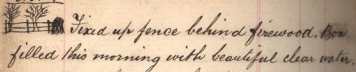 Fixed up fence behind firewood. Box
filled this morning with beautiful clear water.